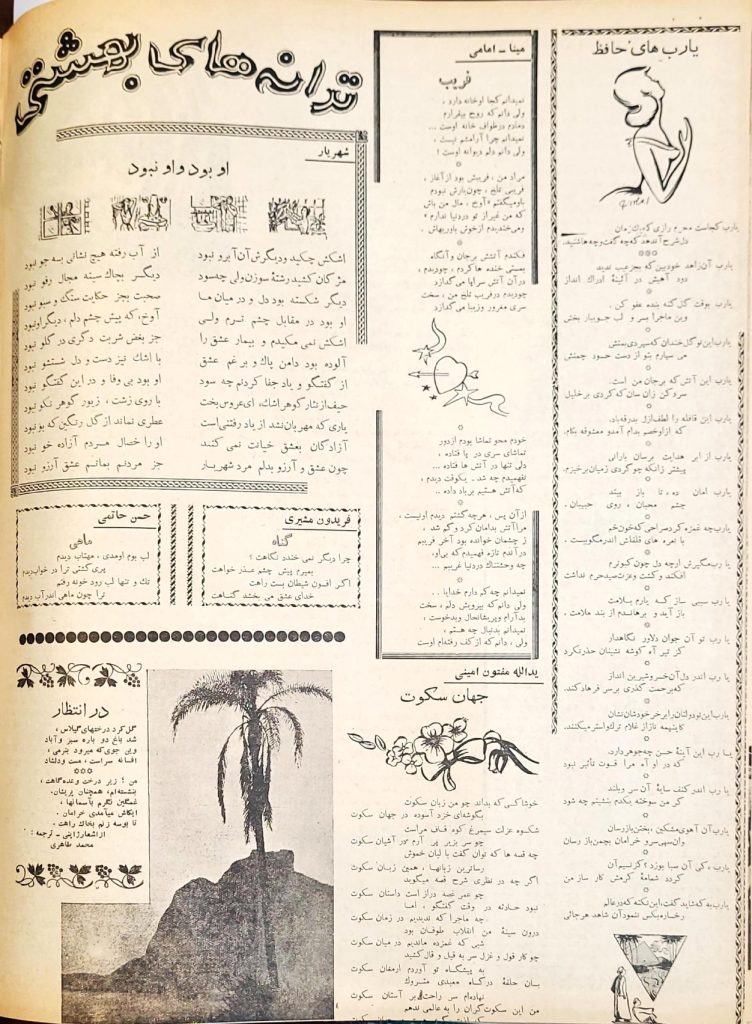 ترانه های بهشتی
شهریار
او بود و او نبود
اشکش چکید و دیگرش آن آبرو نبود
از آب رفته هیچ نشانی به جو نبود
مژگان کشید رشتهٔ سوزن ولی چه سود
دیگر بچاک سینه مجال رفو نبود
دیگر شکسته بود دل و در میان ما
صحبت بجز حکایت سنگ و سبو نبود
او بود در مقابل چشم ترم ولی
آوخ، که پیش چشم دلم، دیگر او نبود
اشکش نمی مکیدم و بیمار عشق را
جز بغض شربت دگری در گلو نبود
آلوده بود دامن پاک و برغم عشق
با اشک نیز دست و دل شستشو نبود
از گفتگو و یاد جفا کردنم چه سود
او بود بی وفا و در این گفتگو نبود
حیف از نثار گوهر اشک، ای عروس بخت
با روی زشت، زیور گوهر نکو نبود
یاری که مهربان نشد از یاد رفتنی است
عطری نماند از گل رنگین که بو نبود
آزادگان بعشق خیانت نمی کنند
او را خصال مردم آزاده خو نبود
چون عشق و آرزو بدلم مرد شهریار
جز مردنم بماتم عشق آرزو نبود
فریدون مشیری
گناه
چرا دیگر نمی خندد نگاهت؟
بمیرم پیش چشم عذر خواهت
اگر افسون شیطان بست راهت
خدای عشق می بخشد گناهت
حسن حاتمی
ماهی
لب بوم اومدی، مهتاب دیدم
پری کشتی ترا در خواب دیدم
تک و تنها لب رود خونه رفتم
ترا چون ماهی اندر آب دیدم
در انتظار
گل کرد درختهای گیلاس،
شد باغ دو باره سبز و آباد
وین جوی که میرود بنرمی،
افسانه سراست، مست و دلشاد
***
من؛ زیر درخت وعده گاهت،
بنشسته ام، همچنان پریشان.
غمگین نگرم بآسمانها،
ایکاش میآمدی خرامان.
تا بوسه زنم بخاک راهت.
از اشعار ژاپنی - ترجمه:
محمد طاهری
مینا - امامی
فریب
نمیدانم کجا او خانه دارد،
ولی دانم که روح بیقرارم
دمادم در طواف خانه اوست ...
نمیدانم چرا آرامشم نیست،
ولی دانم دلم دیوانه اوست!
مراد من، فریبش بود از آغاز،
فریبی تلخ، چون یارش نبودم
باو میگفتم «آوخ، مال من باش
که من غیر از تو در دنیا ندارم»
و می خندیدم از خوش باوریهاش.
فکندم آتشش بر جان و آنگاه
بمستی خنده ها کردم، چو دیدم،
در آن آتش سراپا می گدازد
چو دیدم در فریب تلخ من، سخت
سری مغرور و زیبا می گدازد
خودم محو تماشا بودم از دور
تماشای سری در پا فتاده،
دلی تنها در آتش ها فتاده ...
نفهمیدم چه شد. یکوقت دیدم،
که آتش هستیم بر باد داده ..
از آن پس، هر چه گشتم دیدم او نیست،
مرا آتش بدامان کرد و گم شد،
ز چشمان خوانده بود آخر فریبم
در آندم تازه فهمیدم که بی او،
چه وحشتناک در دنیا غریبم ...
نمیدانم چه کم دارم خدایا ..
ولی دانم که بیرویش دلم، سخت
بد آرام و پریشانحال و بدخوست،
نمیدانم بدنبال چه هستم،
ولی، دانم که از کف رفته ام اوست
یدالله مفتون امینی
جهان سکوت
خوشا کسی که بداند چو من زبان سکوت
بگوشه ای خزد آسوده در جهان سکوت
شکوه عزلت سیمرغ کوه قاف مراست
چو سر بزیر پر آرم در آشیان سکوت
چه قصه ها که توان گفت با لبان خموش
رساترین زبانها، همین زبان سکوت
اگر چه در نظری شرح قصه میگوید
چو عمر غصه دراز است داستان سکوت
نبود حادثه در وقت گفتگو، اما
چه ماجرا که ندیدیم در زمان سکوت
درون سینهٔ من انقلاب طوفان بود
شبی که غمزده ماندیم در میان سکوت
چو کار قول و غزل سر به قیل و قال کشید
به پیشگاه تو آوردم ارمغان سکوت
بسان حلقهٔ درگاه معبدی متروک
نهاده ام سر راحت بر آستان سکوت
من این سکوت گران را به عالمی ندهم
یارب های حافظ
یارب کجاست محرم رازی که یک زمان
دل شرح آن دهد که چه گفت و چه ها شنید.
یارب آن زاهد خودبین که بجز عیب ندید
دود آهیش در آئینهٔ ادراک انداز
یارب بوقت گل گنه بنده عفو کن.
وین ماجرا بسرو لب جویبار بخش
یارب آن نو گل خندان که سپردی بمنش
می سپارم بتو از دست حسود چمنش
یارب این آتش که بر جان من است.
سرد کن زان سان که کردی بر خلیل
یارب این قافله را لطف ازل بدرقه باد.
که از او خصم بدام آمد و معشوقه بکام.
یارب از ابر هدایت برسان بارانی
پیشتر زانکه چو گردی ز میان برخیزم.
یارب امان ده، تا باز بیند
چشم محبان، روی حبیبان.
یارب چه غمزه کرد صراحی که خون خم
با نعره های قلقلش اندر گلو ببست.
یارب مگیرش ار چه دل چون کبوترم
افکند و کشت و عزت صید حرم نداشت
یارب سببی ساز که یارم بسلامت
باز آید و برهاندم از بند ملامت.
یارب تو آن جوان دلاور نگاهدار
کز تیر آه گوشه نشینان حذر نکرد
یارب اندر دل آن خسرو شیرین انداز
که برحمت گذری بر سر فرهاد کند.
یارب این نو دولتان را بر خر خودشان نشان
کاینهمه ناز از غلام ترک و استر میکنند.
یارب این آینهٔ حسن چه جوهر دارد.
که در او آه مرا قوت تأثیر نبود
یارب اندر کنف سایهٔ آن سرو بلند
گر من سوخته یکدم بنشینم چه شود
یارب آن آهوی مشکین، بختن باز رسان
وان سهی سرو خرامان بچمن باز رسان
یارب، کی آن صبا بوزد؟ کز نسیم آن
گردد شمامهٔ کرمش کار ساز من
یارب به که شاید گفت، این نکته که در عالم
رخساره بکس ننمود آن شاهد هر جائی